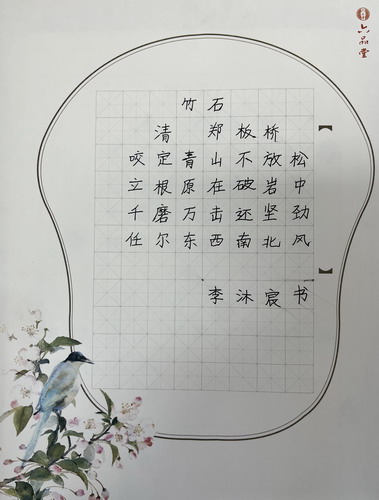 六品堂
竹石
清 郑板桥
咬定青山不放松
立根原在破岩中
千磨万击还坚劲
任尔东西南北风
李沐宸书